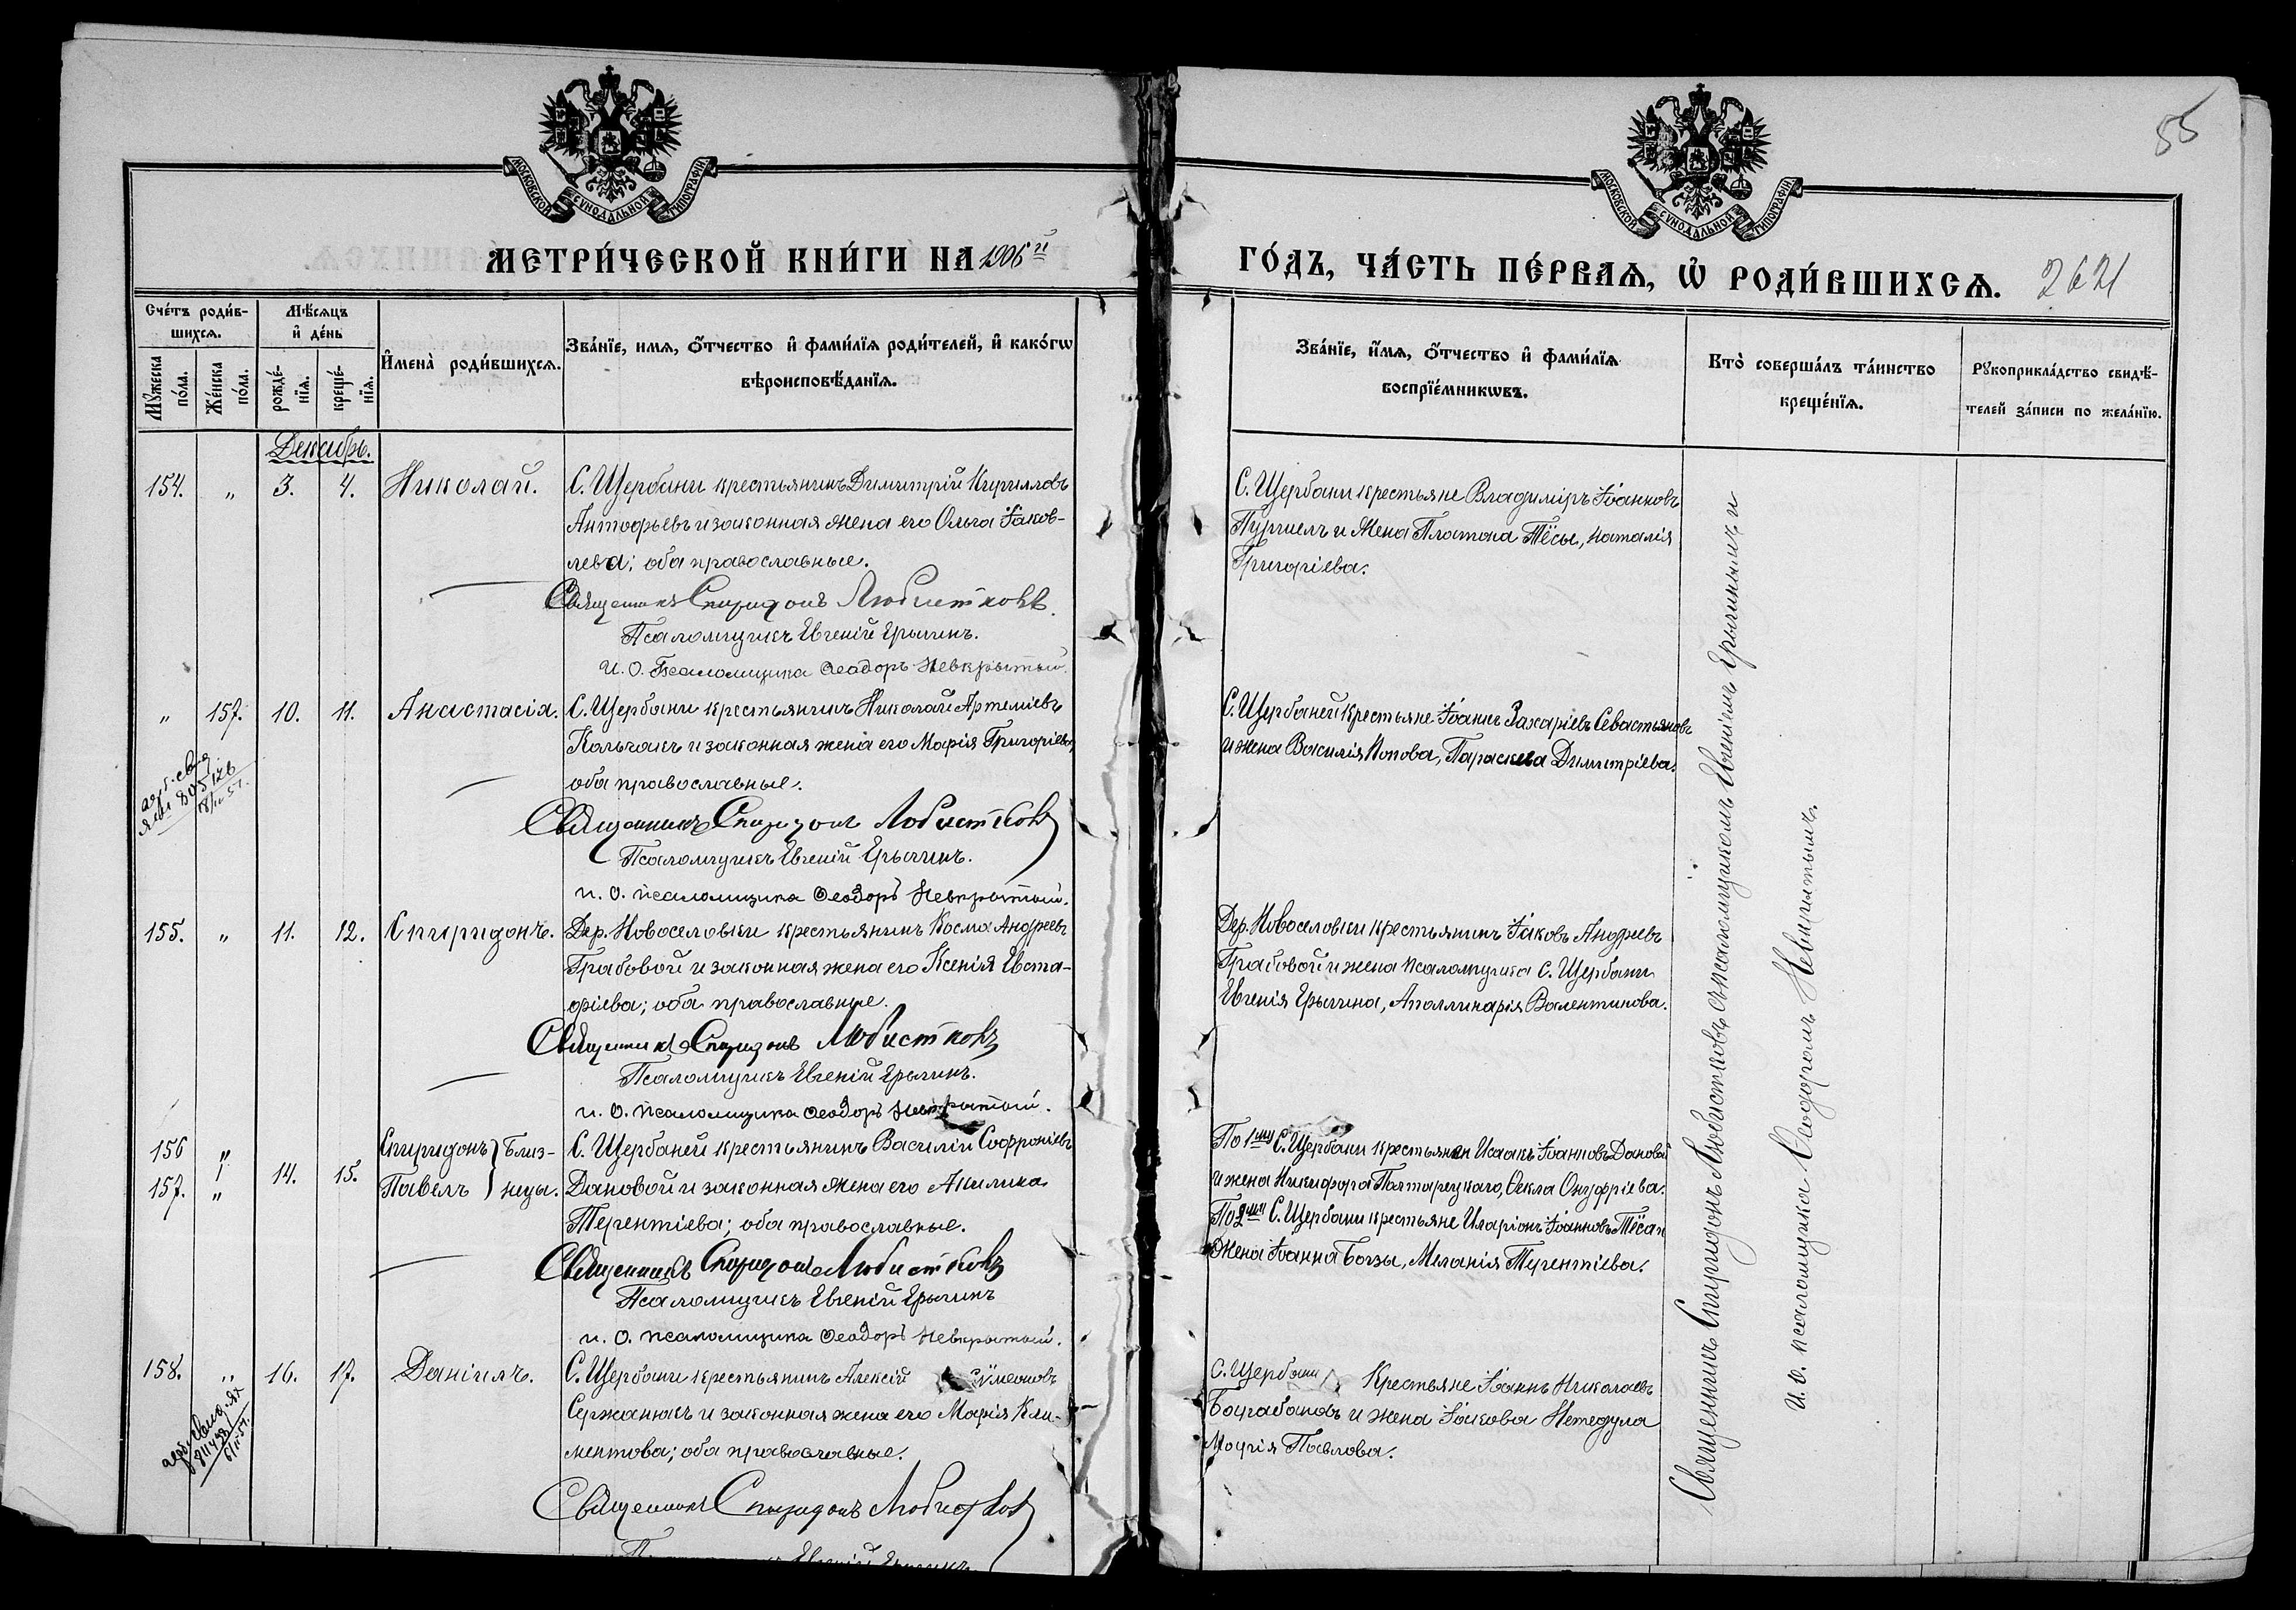 55
МОСКОВСКОЙ СѴНОДАЛЬНОЙ ТИПОГРАФІИ
МОСКОВСКОЙ СѴНОДАЛЬНОЙ ТИПОГРАФІИ
МЕТРИ́ЧЕСКОЙ КНИ́ГИ НА 1906й
ГО́ДЪ, ЧА́СТЬ ПЕ́РВАѦ, Ѡ҆ РОДИ́ВШИХСѦ. 2621
Сче́тъ роди́в-
шихсѧ.
Мѣ́сѧцъ
и҆ де́нь
Мꙋ́жеска по́ла.
Же́нска по́ла.
рожде́-нїѧ.
креще́-нїѧ.
И҆мена̀ роди́вшихсѧ.
Зва́нїе, имѧ, ѻ҆́тчество и҆ фами́лїѧ роди́телей, и҆ како́гѡ
вѣроисповѣ́данїѧ.
Зва́нїе, и҆́мѧ, ѻ҆́тчество и҆ фами́лїѧ
воспрїе́мникѡвъ.
Кто̀ соверша́лъ та́инство
креще́нїѧ.
Рꙋкоприкла́дство свидѣ́-
телей за́писи по жела́нїю.
Декабрь.
154. „ 3. 4. Николай. С. Щербани крестьянинъ Димитрій Кирилловъ
Антофьевъ и законная жена его Ольга Іаков-
лева; оба православные.
Священникъ Спиридонъ Любистковъ.
Псаломщикъ Евгеній Ерыгинъ.
И. О. Псаломщика Ѳеодоръ Невкрытый.
С. Щербани крестьяне Владиміръ Іоанновъ
Пургнелъ и Жена Платона Тёсы, Наталія
Григоріева.
„ 157. 10. 11. Анастасія. С. Щербани крестьянинъ Николай Артеміевъ
Кольчакъ и законная жена его Марія Григоріева,
оба православные.
Священникъ Спиридонъ Любистковъ
Псаломщикъ Евгеній Ерыгинъ.
и. о. псаломщика Ѳеодоръ Невкрытый.
С. Щербаней крестьяне Іоаннъ Захаріевъ Севастьяновъ
и жена Василія Попова, Параскева Димитріева.
155. „ 11. 12. Спиридонъ. Дер. Новоселовки крестьянинъ Косма Андреевъ
Грабовой и законная жена его Ксенія Евста-
фіева; оба православные.
Священникъ Спиридонъ Любистковъ
Псаломщикъ Евгеній Ерыгинъ.
и. о. псаломщика Ѳеодоръ Невкрытый.
Дер. Новоселовки крестьянинъ Іаковъ Андреевъ
Грабовой и жена псаломщика С. Щербани
Евгенія Ерыгина, Аполлинарія Валентинова.
156 „
157. „
14. 15.
Спиридонъ } Близ-
Павелъ } нецы.
С. Щербаней крестьянинъ Василій Софроніевъ
Дановой и законная жена его Акилина
Терентіева; оба православные.
Священникъ Спиридонъ Любистковъ
Псаломщикъ Евгеній Ерыгинъ
и. о. псаломщика Ѳеодоръ Невкрытый.
По 1му С. Щербани крестьянин Исаакъ Іоанновъ Дановой
и жена Никифора Полтарецкаго, Ѳекла Онуфріева.
По 2му С. Щербани крестьяне Иларіонъ Іоанновъ Тёса и
Жена Іоанна Богзы, Меланія Терентіева.
158. „ 16. 17. Даніилъ. С. Щербани крестьянинъ Алексій Сѵмеоновъ
Сержанюкъ и законная жена его Марія Кли-
ментова; оба православные.
Священникъ Спиридонъ Любистковъ
Евгеній Ерыгинъ.
С. Щербани Крестьяне Іоаннъ Николаевъ
Барабановъ и жена Іакова Непедула
Марія Павлова.
Священникъ Спиридонъ Любистковъ съ псаломщикомъ Евгеніемъ Ерыгинымъ и
И. О. псаломщика Ѳеодоромъ Невкрытымъ.